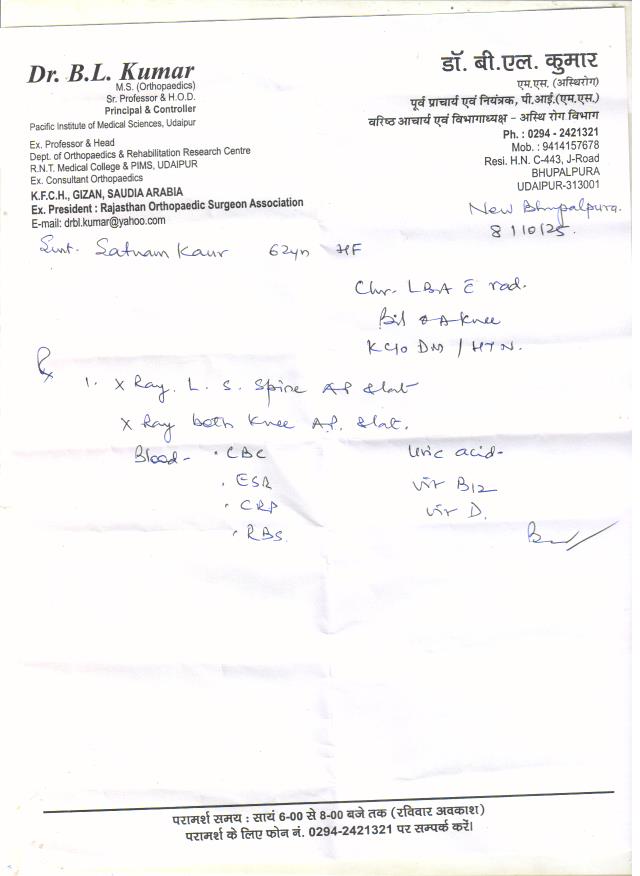 Dr. B.L. Kumar
M.S. (Orthopaedics)
Sr. Professor & H.O.D.
Principal & Controller
Pacific Institute of Medical Sciences, Udaipur
Ex. Professor & Head
Dept. of Orthopaedics & Rehabilitation Research Centre
R.N.T. Medical College & PIMS, UDAIPUR
Ex. Consultant Orthopaedics
K.F.C.H., GIZAN, SAUDI ARABIA
Ex. President : Rajasthan Orthopaedic Surgeon Association
E-mail: drbl.kumar@yahoo.com
डॉ. बी.एल. कुमार
एम.एस. (अस्थिरोग)
पूर्व प्राचार्य एवं नियंत्रक, पी.आई.(एम.एस.)
वरिष्ठ आचार्य एवं विभागाध्यक्ष - अस्थि रोग विभाग
Ph. : 0294 - 2421321
Mob. : 9414157678
Resi. H.N. C-443, J-Road
BHUPALPURA
UDAIPUR-313001
New Bhupalpura.
8/10/25.
Smt. Satnam Kaur 62yn HF
Chr. LBA c̄ rad.
Bil OA knee
K/C/O DM / HTN.
Rx
1. X Ray. L. S. Spine AP & lat
X Ray both Knee AP. & lat.
Blood - • CBC Uric acid-
• ESR Vit B12
• CRP Vit D.
• RBS
परामर्श समय : सायं 6-00 से 8-00 बजे तक (रविवार अवकाश)
परामर्श के लिए फोन नं. 0294-2421321 पर सम्पर्क करें।